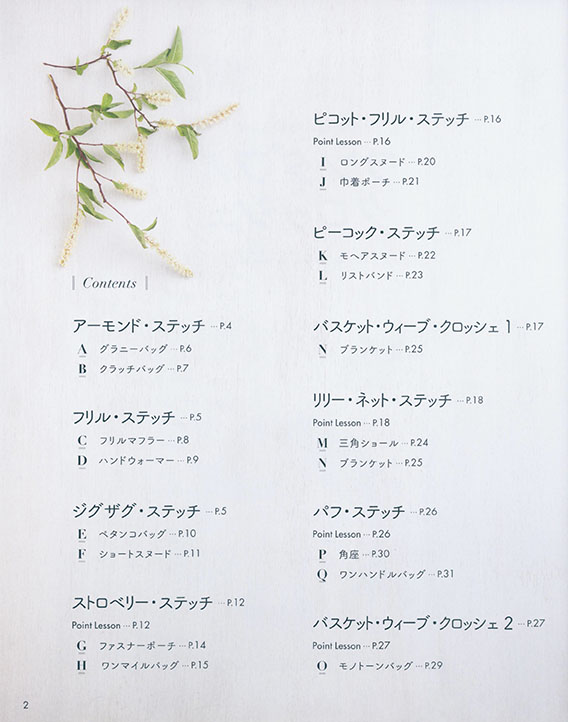 Contents
アーモンド・ステッチ …P.4
A グラニーバッグ …P.6
B クラッチバッグ …P.7
フリル・ステッチ …P.5
C フリルマフラー …P.8
D ハンドウォーマー …P.9
ジグザグ・ステッチ …P.5
E ペタンコバッグ …P.10
F ショートスヌード …P.11
ストロベリー・ステッチ …P.12
Point Lesson …P.12
G ファスナーポーチ …P.14
H ワンマイルバッグ …P.15
ピコット・フリル・ステッチ …P.16
Point Lesson …P.16
I ロングスヌード …P.20
J 巾着ポーチ …P.21
ピーコック・ステッチ …P.17
K モヘアスヌード …P.22
L リストバンド …P.23
バスケット・ウィーブ・クロッシェ 1 …P.17
N ブランケット …P.25
リリー・ネット・ステッチ …P.18
Point Lesson …P.18
M 三角ショール …P.24
N ブランケット …P.25
パフ・ステッチ …P.26
Point Lesson …P.26
P 角座 …P.30
Q ワンハンドルバッグ …P.31
バスケット・ウィーブ・クロッシェ 2 …P.27
Point Lesson …P.27
O モノトーンバッグ …P.29
2